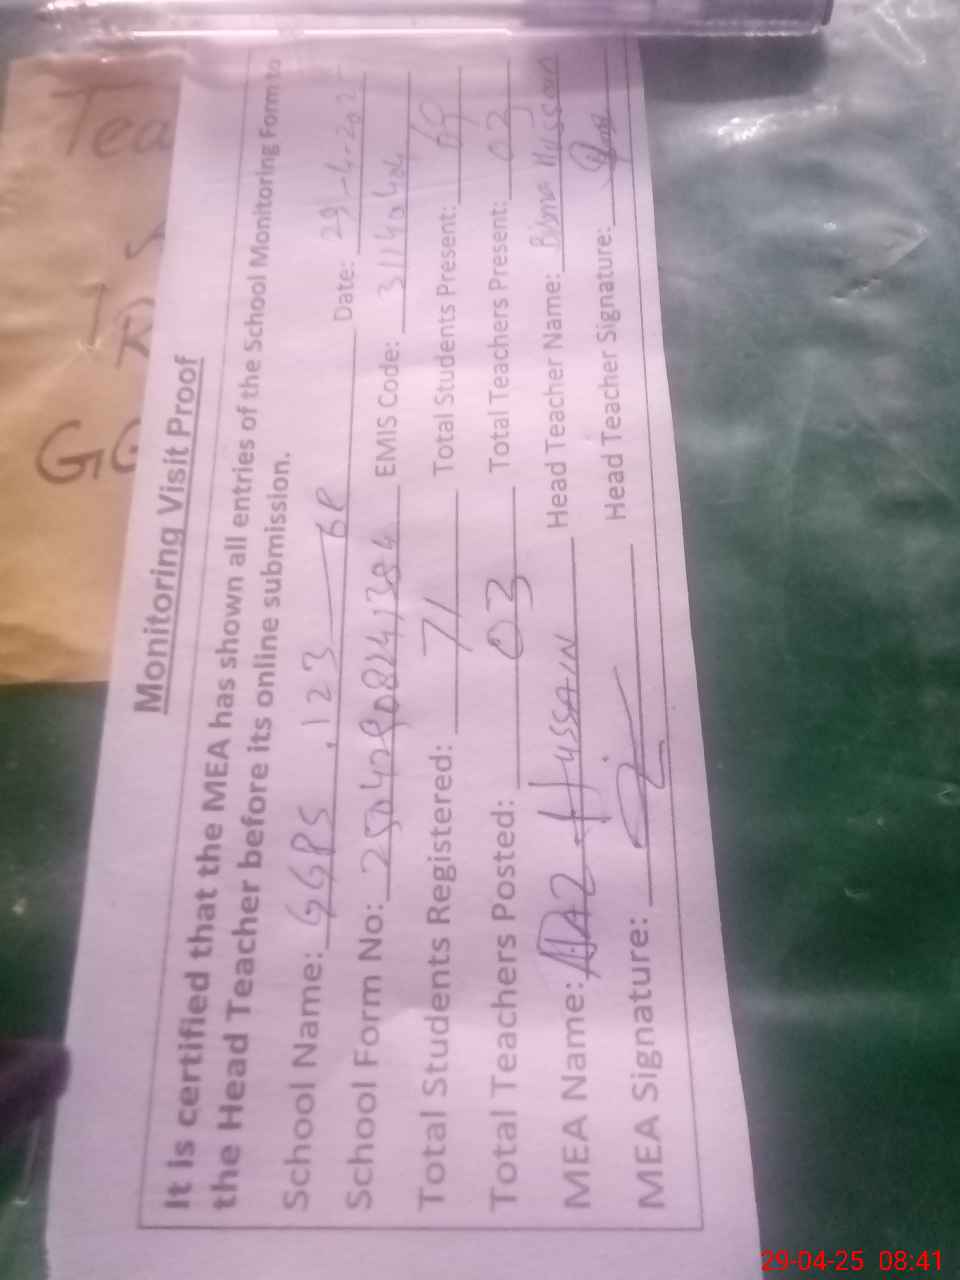 Tea
GG
Monitoring Visit Proof
It is certified that the MEA has shown all entries of the School Monitoring Form to
the Head Teacher before its online submission.
School Name: GGPS , 123 6R Date: 29-4-202
School Form No: EMIS Code: 31140404
Total Students Registered: 71 Total Students Present: 69
Total Teachers Posted: 03 Total Teachers Present: 03
MEA Name: HUSSAIN Head Teacher Name: Hussain
MEA Signature: Head Teacher Signature:
29-04-25 08:41